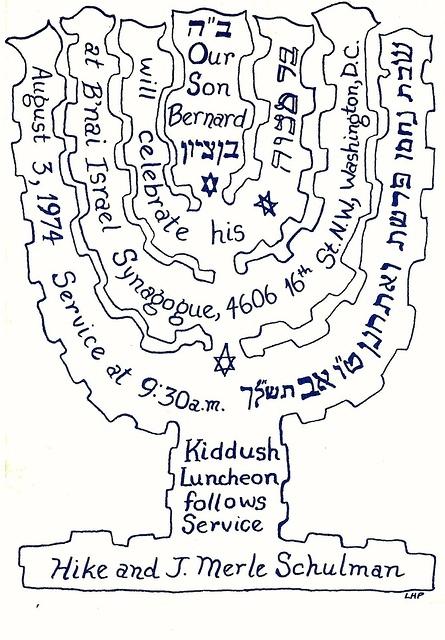 ב"ה
Our
Son
Bernard
בן־ציון
will celebrate his
בר מצוה
at B'nai Israel Synagogue, 4606 16th St. N.W., Washington, D.C.
August 3, 1974 Service at 9:30 a.m.
שבת נחמו פרשת ואתחנן ט"ו אב תשל"ד
Kiddush
Luncheon
follows
Service
Hike and J. Merle Schulman
LHP